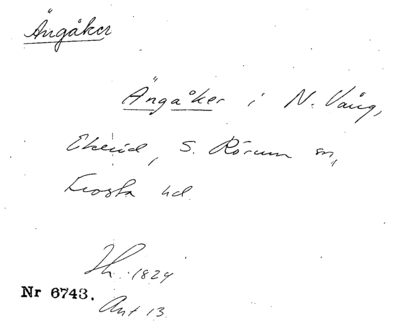 Ängåker
Ängåker i N. Vång,
Ekeröd, S. Rörum sn,
Frosta hd.
Th. 1824
Nr 6743.
Ant 13.